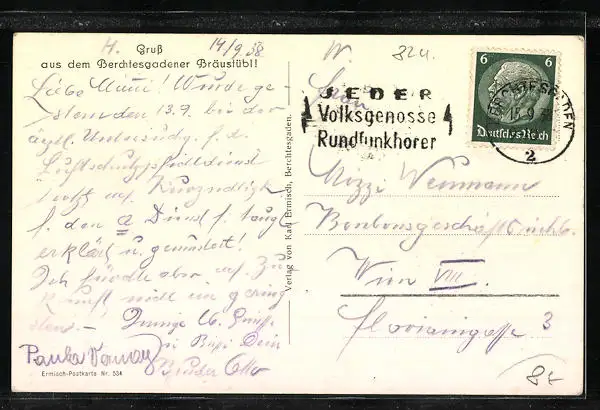 H. Gruß 14/9 38
aus dem Berchtesgadener Bräustübl!
Liebe Mimi! Wurde ge-
stern den 13.9. bei der
ärztl. Untersuchg. f. d.
Luftschutz
trotz auf. Kurzsichtigk.
f. den a Dienst f. taugl.
erklärt u. gemustert!
Ich fürchte aber auf. Zu-
kunft nicht im gering-
sten. – Innige Grüße
Dein
Bruder Otto
Ermisch-Postkarte Nr. 534
Verlag von Karl Ermisch, Berchtesgaden.
W. 324.
JEDER
Volksgenosse
Rundfunkhörer
6 6
Deutsches Reich
BERCHTESGADEN
15.9.38
2
Frau
Mizzi Weinmann
Bonbonsgeschäft
Wien VIII.
Floriangasse 3
8f